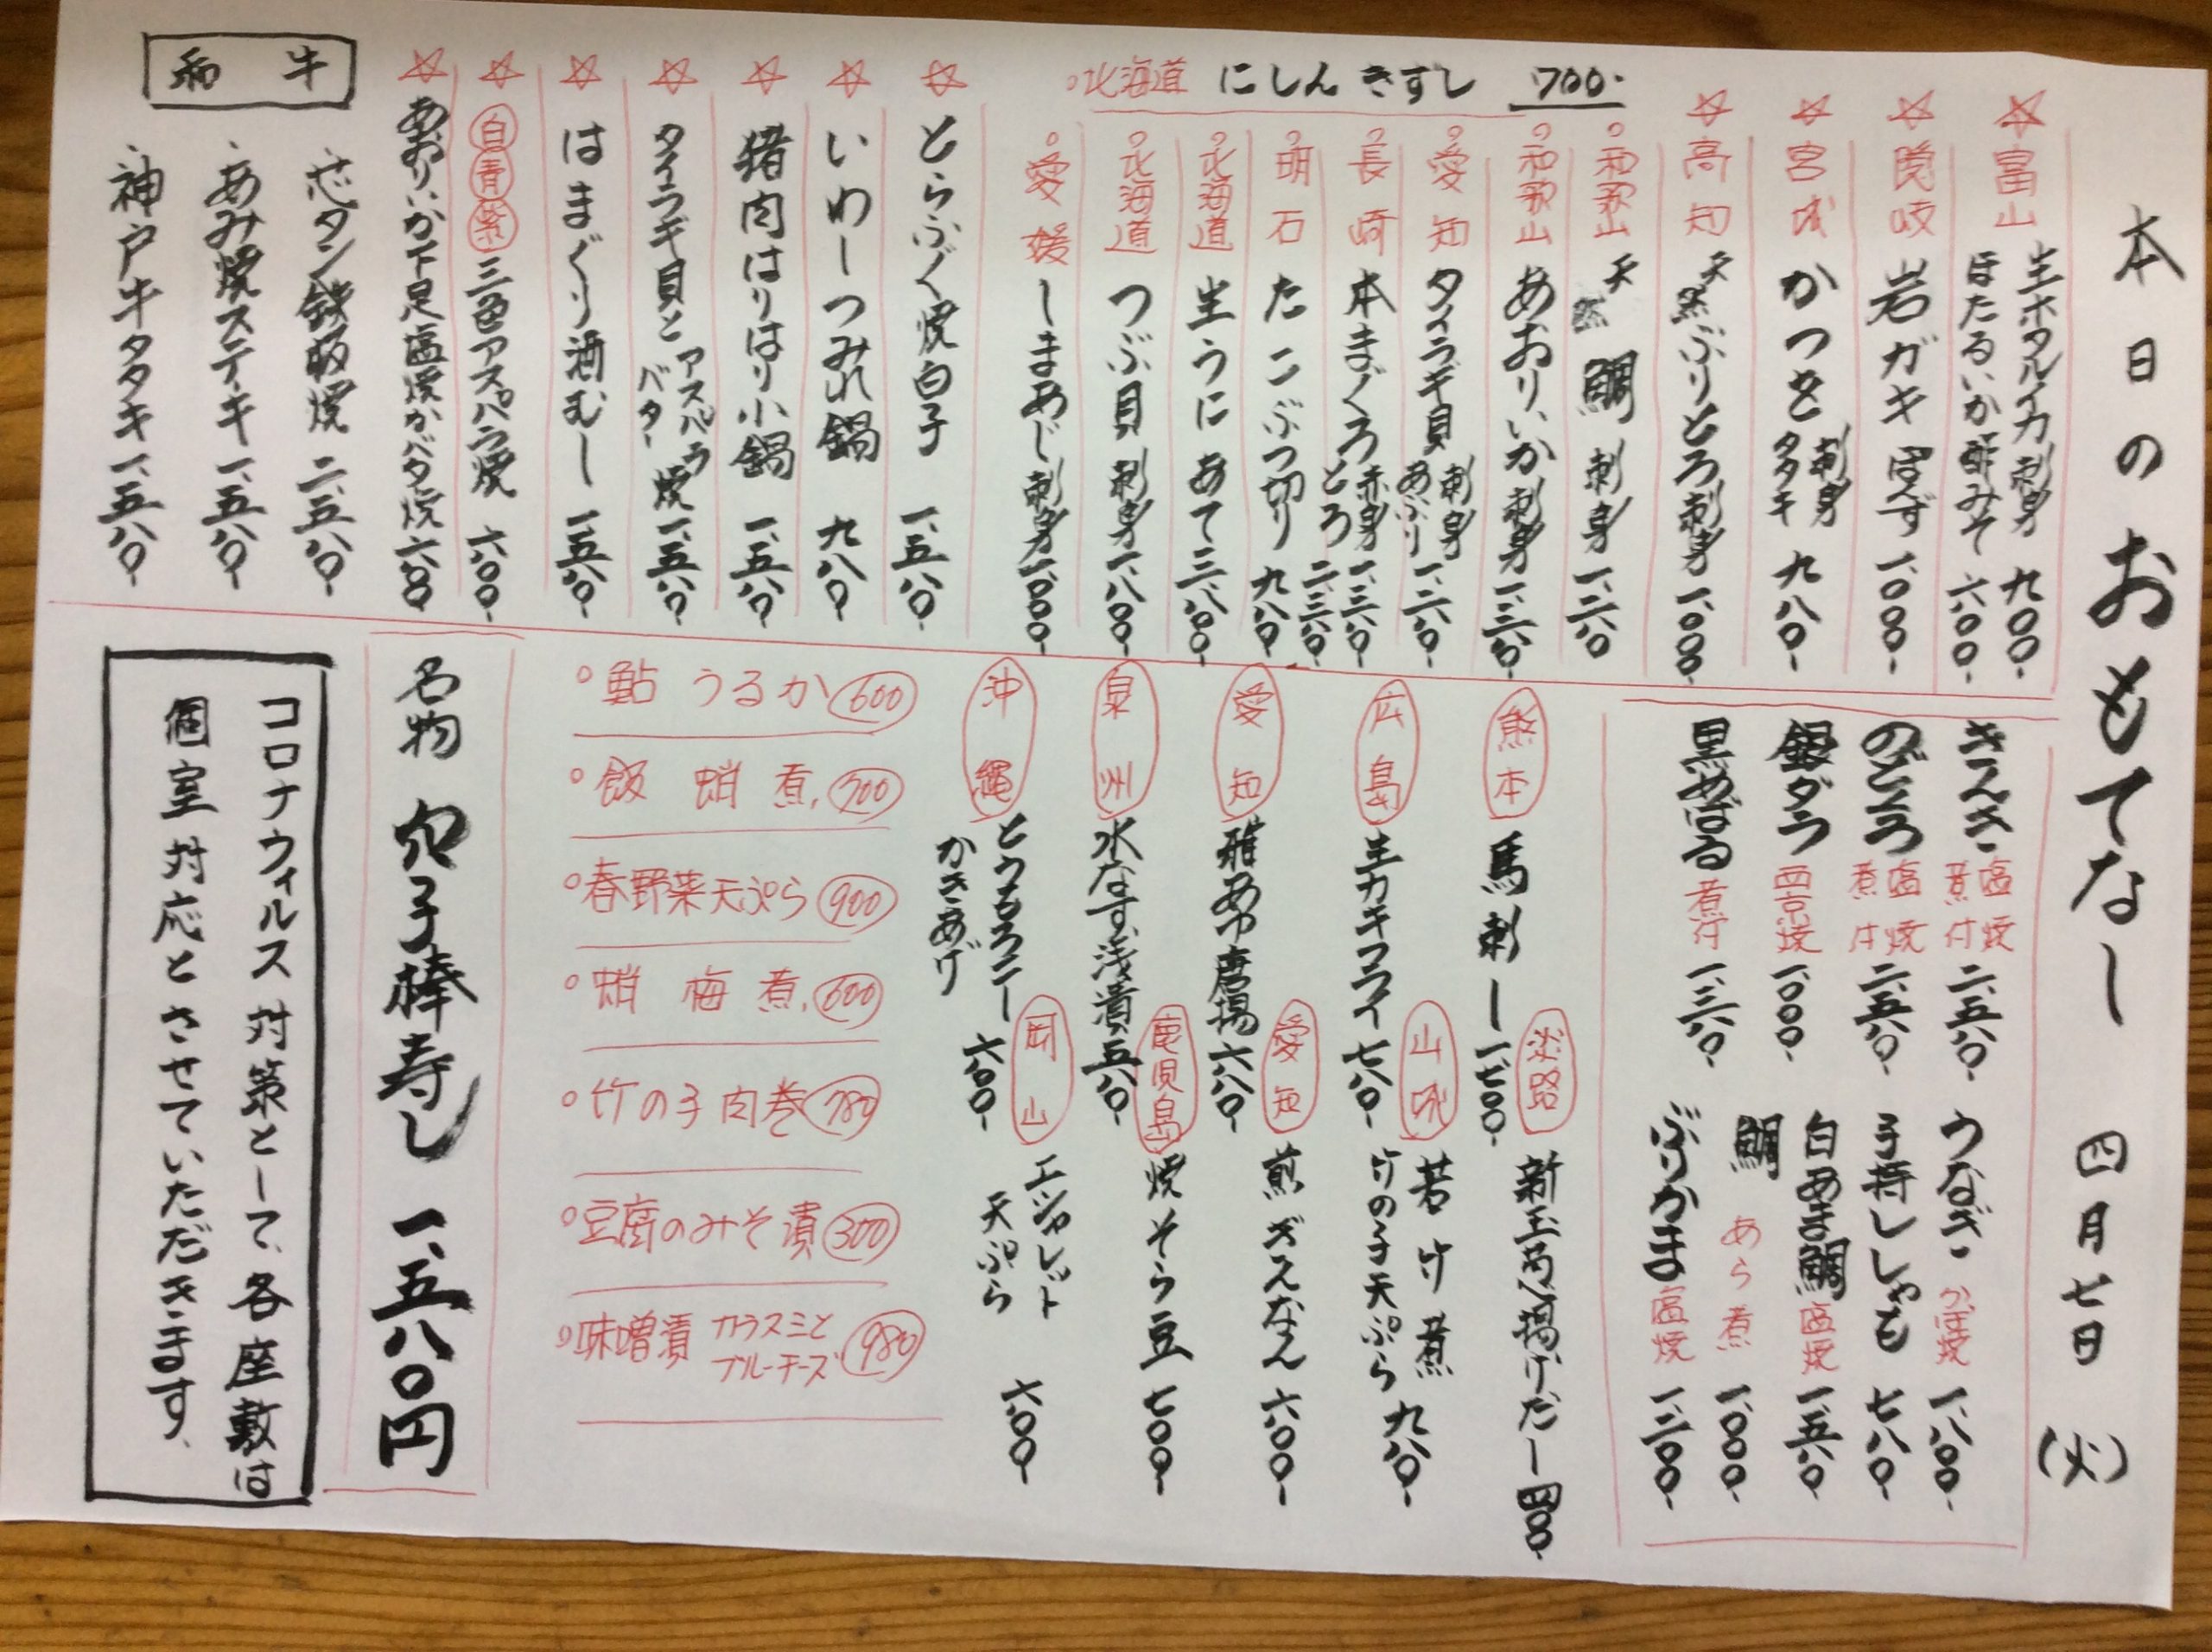 本日のおもてなし 四月七日(火)
北海道 にしんきずし 700.
☆富山 生ホタルイカ刺身 九00-
ほたるいか酢みそ 六00-
☆隠岐 岩ガキ ぽんず 一、000-
☆宮城 かつを 刺身 タタキ 九八0-
☆高知 天然ぶりとろ刺身 一、八00-
和歌山 天然 鯛 刺身 一、二八0
和歌山 あおりいか刺身 一、三八0-
愛知 タイラギ貝 刺身 あぶり 一、二八0-
長崎 本まぐろ 赤身 一、三八0-
とろ 二、三八0-
明石 たこぶつ切り 九八0-
北海道 生うに あて 三、八00-
北海道 つぶ貝 刺身 一、八00-
愛媛 しまあじ 刺身 一、000-
☆とらふぐ焼白子 一、五八0-
☆いわしつみれ鍋 九八0-
☆猪肉はりはり小鍋 一、五八0-
☆タイラギ貝とアスパラバター焼 一、五八0-
☆はまぐり酒むし 一、五八0-
☆白青紫 三色アスパラ焼 六00-
☆あおりいか下足塩焼かバタ焼 六00-
和牛
芯タン鉄板焼 二、五八0-
あみ焼ステーキ 一、五八0-
神戸牛タタキ 一、五八0-
きんき 塩焼 煮付 二、五八0-
のどぐろ 塩焼 煮付 二、五八0-
銀ダラ 西京焼 一、000-
黒めばる 煮付 一、三八0-
うなぎ かば焼 一、八00-
子持ししゃも 七八0-
白あま鯛 塩焼 一、五八0-
鯛 あら煮 一、000-
ぶりかま 塩焼 一、二00-
熊本 馬刺し 一、七00-
広島 生カキフライ 七八0-
愛知 稚あゆ唐揚 六八0-
泉州 水なす浅漬 五八0-
沖縄 とうもろこしかきあげ 六00-
淡路 新玉ねぎ揚げだし 四八0-
山城 若竹煮
竹の子天ぷら 九八0-
愛知 煎ぎんなん 六00-
鹿児島 焼そら豆 七00-
岡山 エシャレット天ぷら 六00-
鮎うるか 600
飯蛸煮 700
春野菜天ぷら 900
蛸梅煮 600
竹の子肉巻 780
豆腐のみそ漬 300
味噌漬 カラスミとブルーチーズ 980
名物 穴子棒寿し 一、五八0円
コロナウィルス対策として、各座敷は
個室対応とさせていただきます、